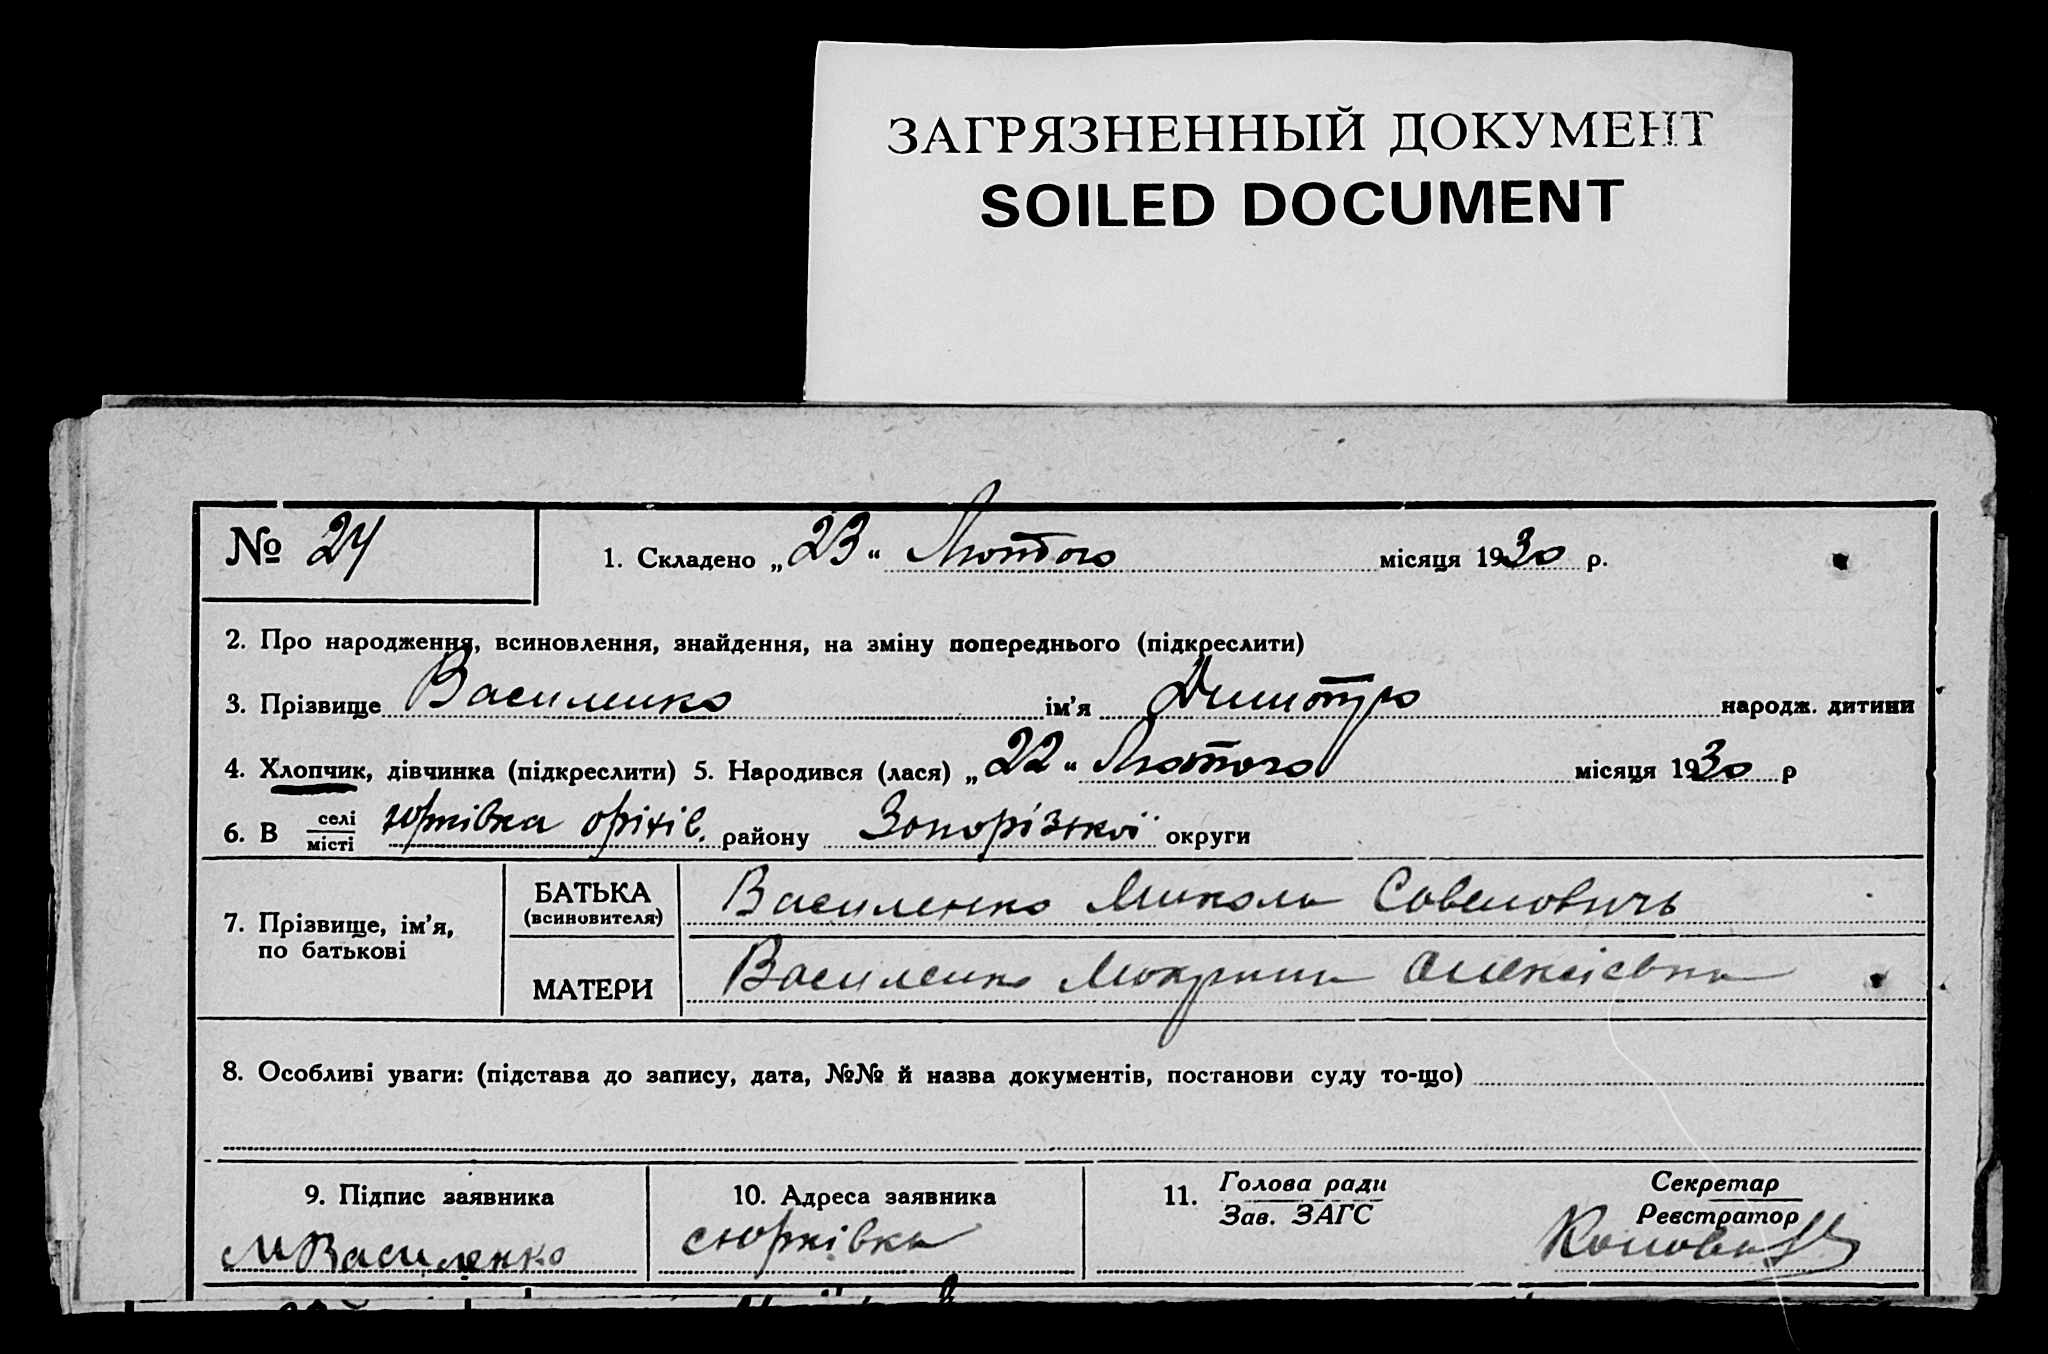 ЗАГРЯЗНЕННЫЙ ДОКУМЕНТ
SOILED DOCUMENT
№ 24
1. Складено „23“ Лютого місяця 1930 р.
2. Про народження, всиновлення, знайдення, на зміну попереднього (підкреслити)
3. Прізвище Василенко ім'я Димитро народж. дитини
4. Хлопчик, дівчинка (підкреслити) 5. Народився (лася) „22“ Лютого місяця 1930 р
6. В селі місті Юрківка оріхів. району Запорізької округи
7. Прізвище, ім'я, по батькові
БАТЬКА (всиновителя) Василенко Микола Савелович
МАТЕРИ Василенко Мокрина Олексіевна
8. Особливі уваги: (підстава до запису, дата, №№ й назва документів, постанови суду то-що)
9. Підпис заявника
МВасиленко
10. Адреса заявника
с Юрківка
11. Голова ради
Зав. ЗАГС
Секретар
Реєстратор